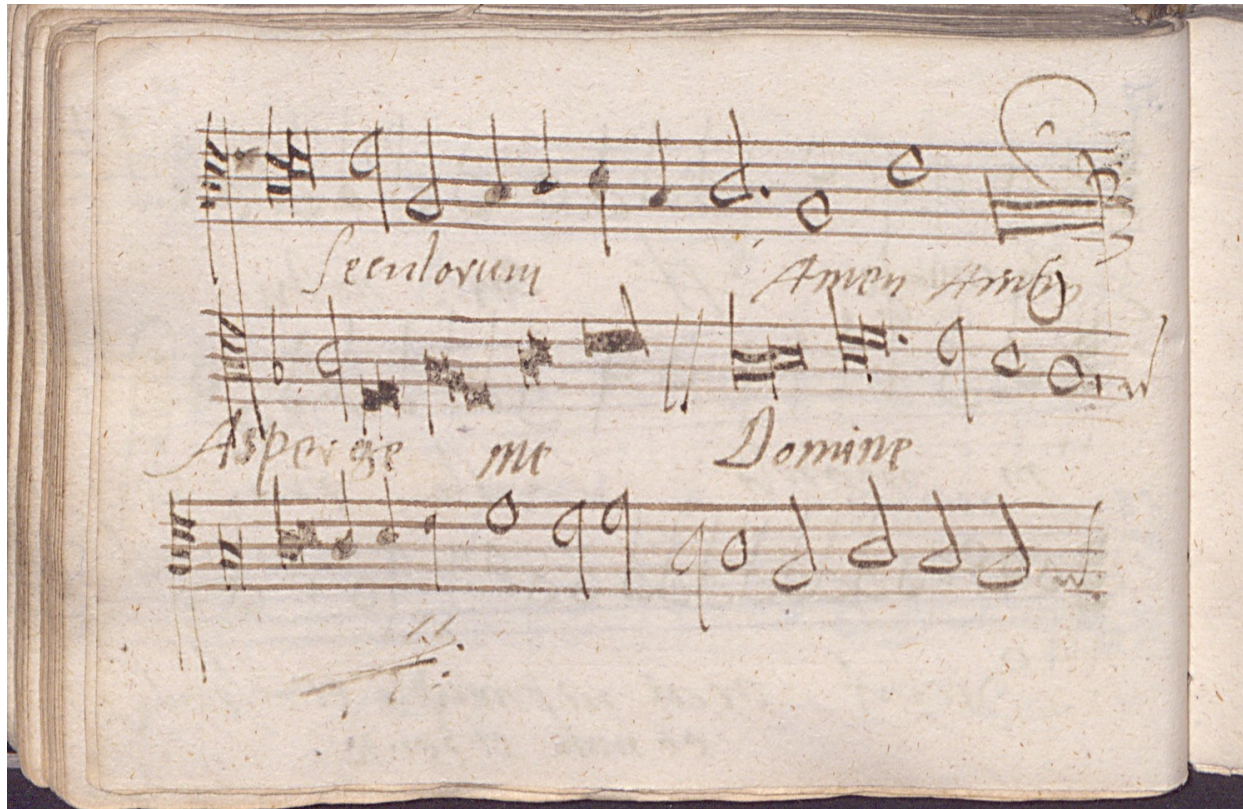 Seculorum Amen Amen
Asperge me Domine